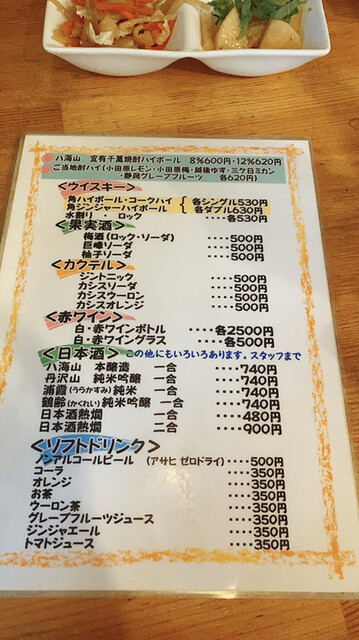 ・八海山 宜有千萬焼酎ハイボール 8%600円・12%620円
・ご当地酎ハイ(小田原レモン・小田原梅・越後ゆず・三ケ日ミカン
・静岡グレープフルーツ 各620円)
<ウイスキー>
角ハイボール・コークハイ
角ジンジャーハイボール
各シングル530円
各ダブル630円
水割り ・ ロック ・・・・各530円
<果実酒>
梅酒(ロック・ソーダ) ・・・・・500円
巨峰ソーダ ・・・・・500円
柚子ソーダ ・・・・・500円
<カクテル>
ジントニック ・・・・・500円
カシスソーダ ・・・・・500円
カシスウーロン ・・・・・500円
カシスオレンジ ・・・・・500円
<赤ワイン>
白・赤ワインボトル ・・・・各2500円
白・赤ワイングラス ・・・・各500円
<日本酒> この他にもいろいろあります。スタッフまで
八海山 本醸造 一合 ・・・・740円
丹沢山 純米吟醸 一合 ・・・・740円
浦霞(うらかすみ)純米 一合 ・・・・740円
鶴齢(かくれい)純米吟醸 一合 ・・・・740円
日本酒熱燗 一合 ・・・・480円
日本酒熱燗 二合 ・・・・900円
<ソフトドリンク>
ノンアルコールビール (アサヒ ゼロドライ) ・・・・500円
コーラ ・・・・350円
オレンジ ・・・・350円
お茶 ・・・・350円
ウーロン茶 ・・・・350円
グレープフルーツジュース ・・・・350円
ジンジャエール ・・・・350円
トマトジュース ・・・・350円